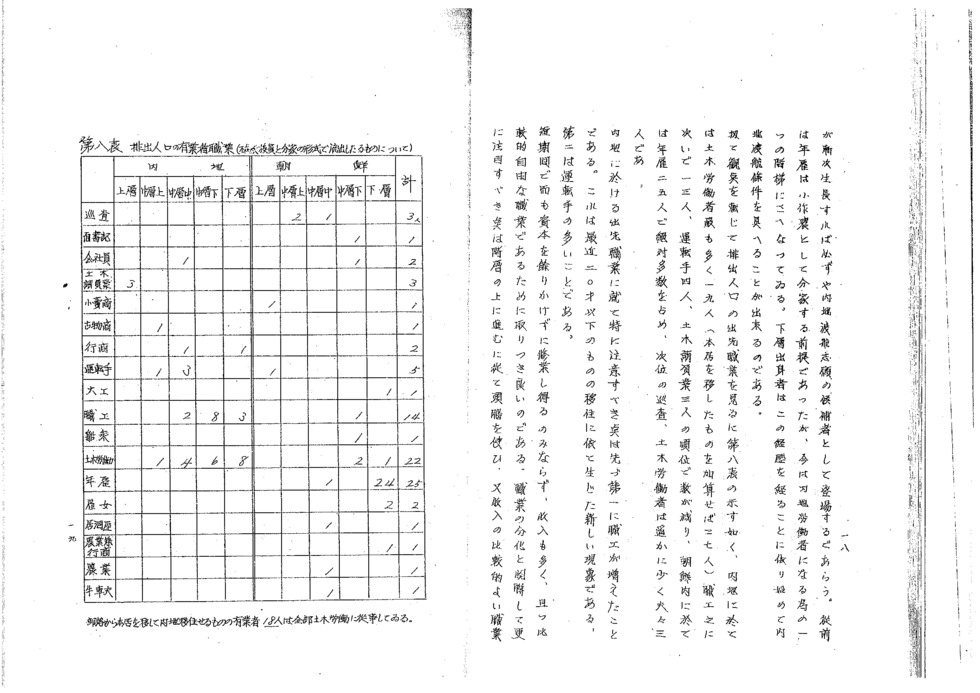 一八
が漸次生長すれば必ずや内地渡航志願の候補者として登場するであらう。従前
は年雇は小作農として分家する前提であったが、今は内地労働者になる為の一
つの階梯にさへなってゐる。下層出身者はこの経歴を経ることに依り始めて内
地渡航條件を具へることが出来るのである。
扨て観点を転じて排出人口の出先職業を見るに第八表の示す如く、内地に於て
は土木労働者最も多く一九人（本居を移したものを加算せば三七人）職工之に
次いで一三人、運転手四人、土木請負業三人の順位で数が減り、朝鮮内に於て
は年雇二五人で絶対多数を占め、次位の巡査、土木労働者は遥かに少く夫々三
人であ。
内地に於ける出先職業に就て特に注意すべき点は先づ第一に職工が増えたこと
である。これは最近二〇才以下のものの移住に依て生じた新しい現象である。
第二は運転手の多いことである。
短期間で而も資本を餘りかけずに修業し得るのみならず、收入も多く、且つ比
較的自由な職業であるために取りつき良いのである。職業の分化と関聯して更
に注目すべき点は階層の上に進むに従て頭脳を使ひ、又收入の比較的よい職業
第八表 排出人口の有業者職業
内地 朝鮮 計
上層 中層上 中層中 中層下 下層 上層 中層上 中層中 中層下 下層
巡査 2 1 3人
面書記 1 1
会社員 1 1 2
土木請負業 3 3
小賣商 1 1
古物商 1 1
行商 1 1 2
運転手 1 3 1 5
大工 1 1
職工 2 8 3 1 14
1 1
土木労働 1 4 6 8 2 1 22
年雇 1 24 25
雇女 2 2
居酒屋 1 1
農業兼行商 1 1
農業 1 1
牛車夫 1 1
部落から本居を移して内地移住せるものの有業者18人は全部土木労働に従事してゐる。
一九